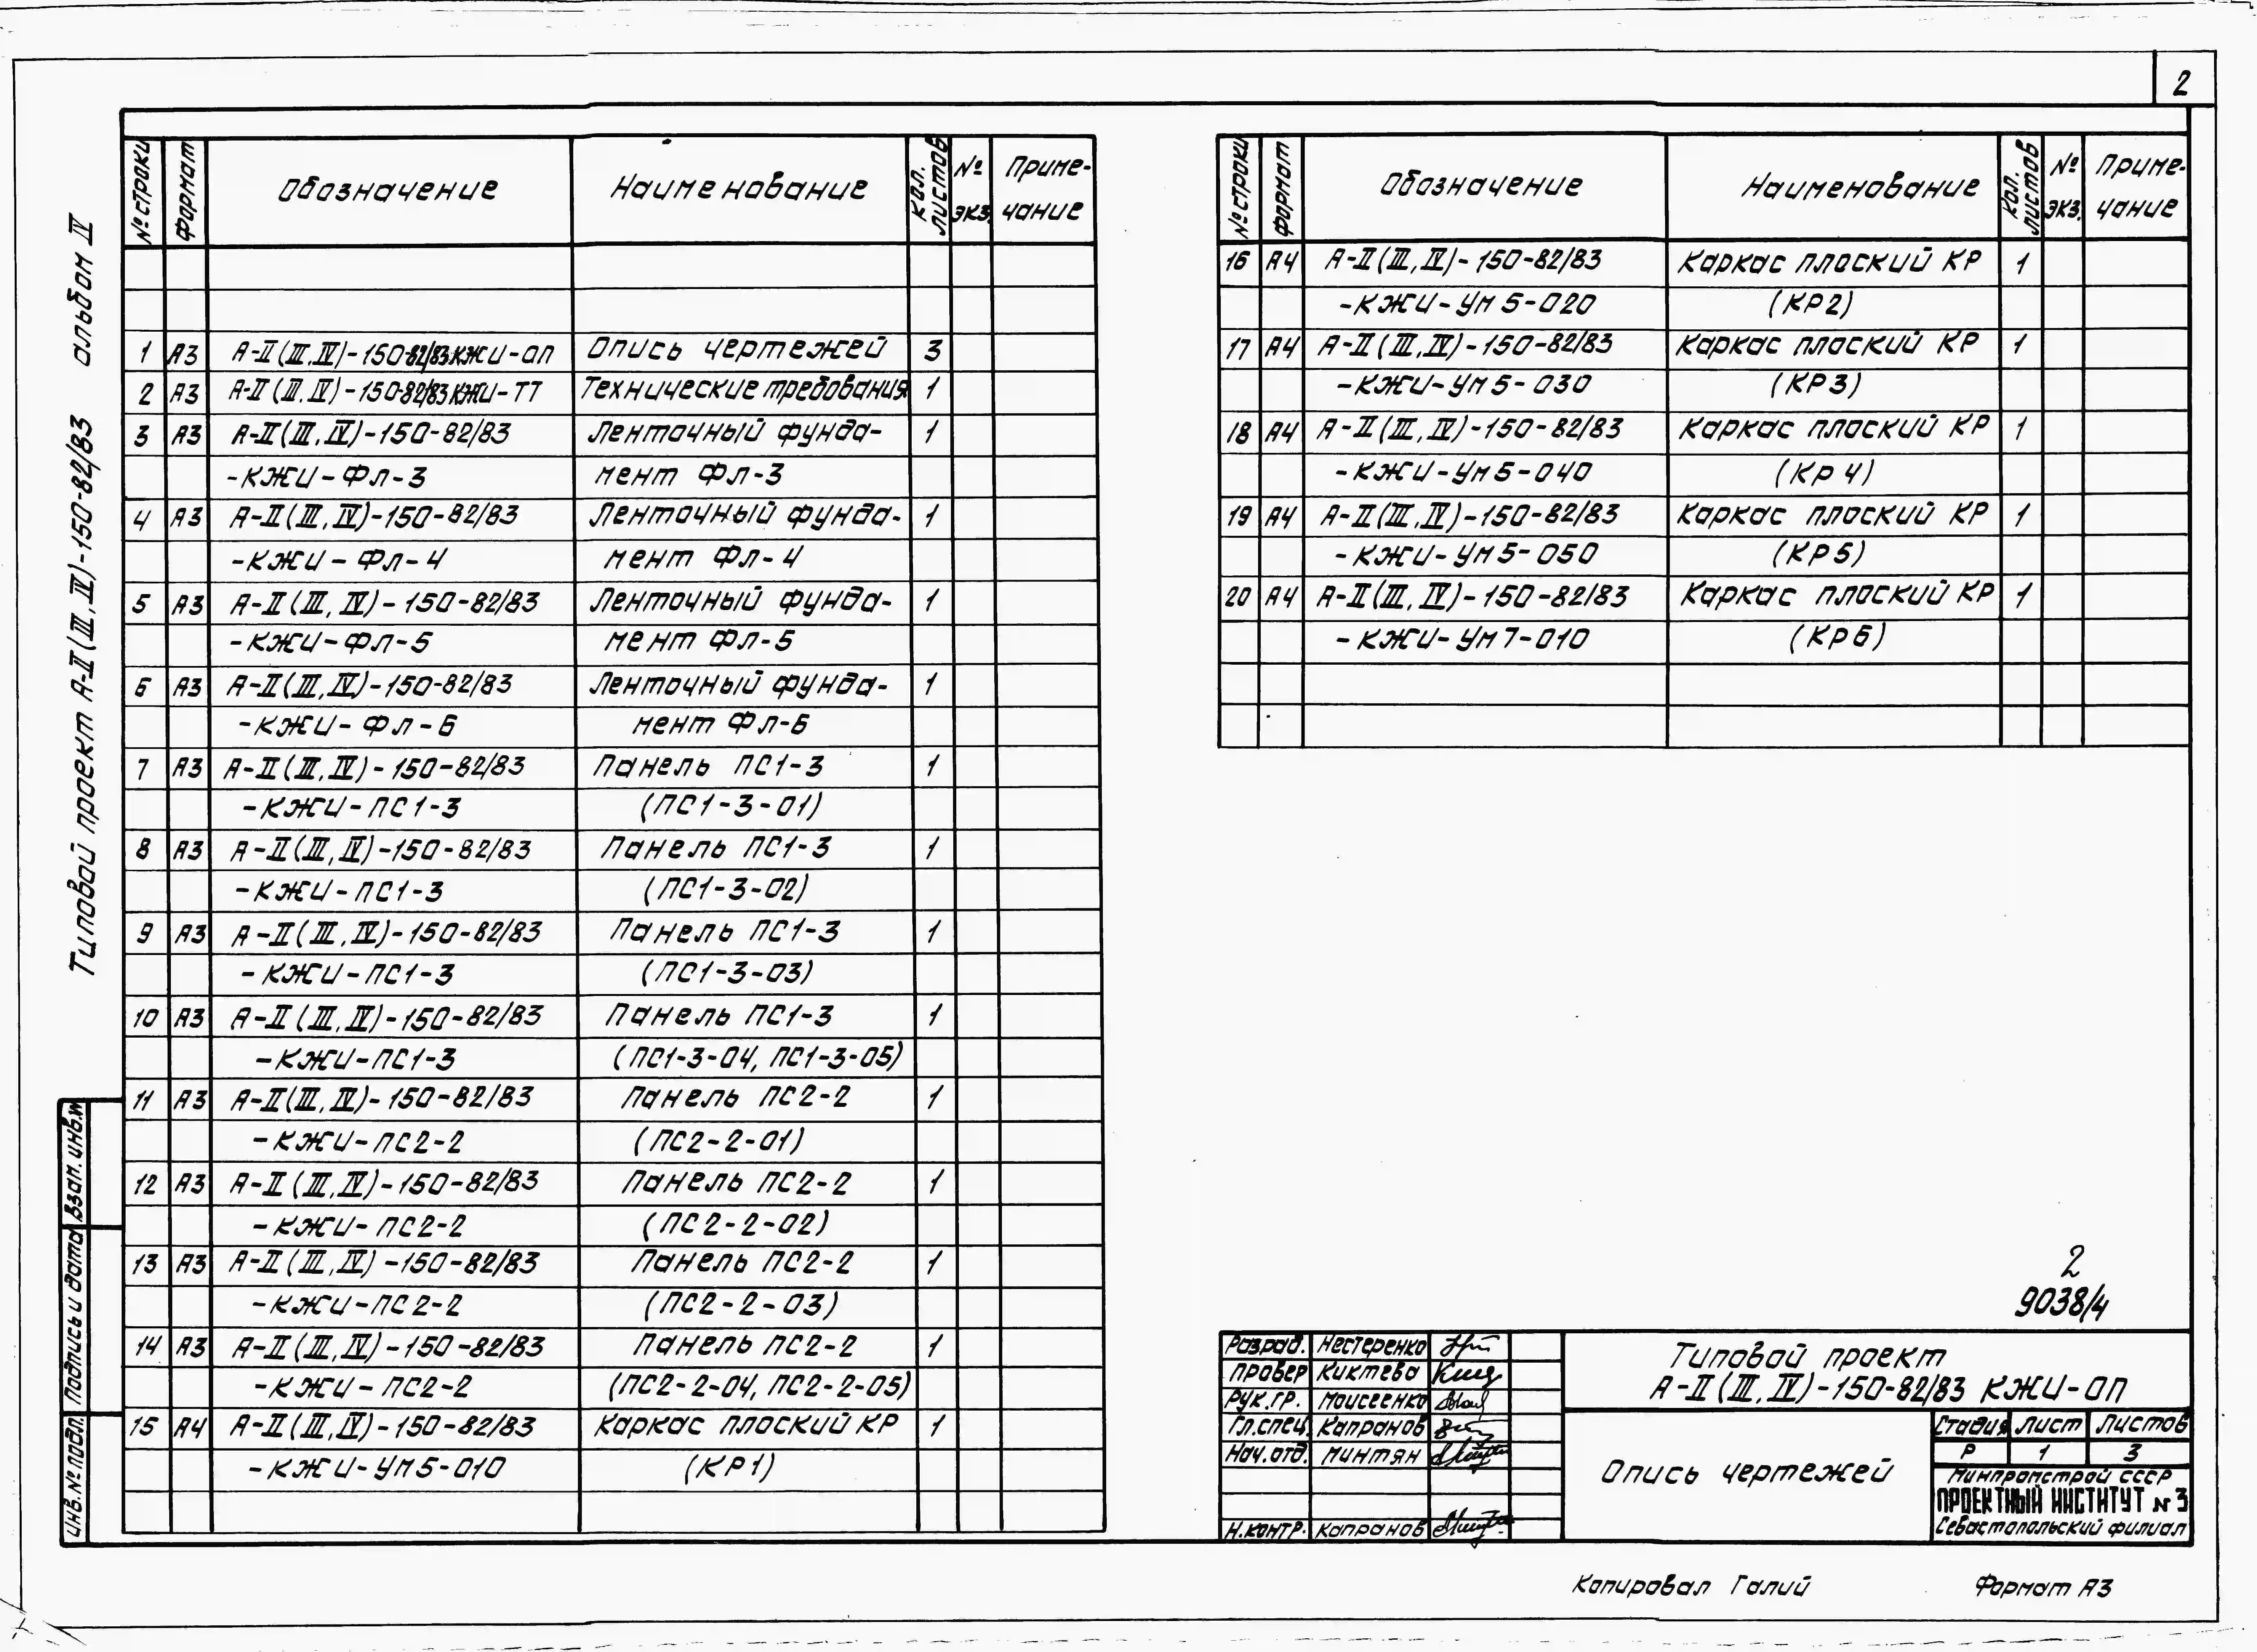 2
Типовой проект А-II(III,IV)-150-82/83 альбом IV
№ строки Формат Обозначение Наименование Кол. листов № экз. Приме-чание
1 А3 А-II(III,IV)-150-82/83КЖИ-ОП Опись чертежей 3
2 А3 А-II(III,IV)-150-82/83КЖИ-ТТ Технические требования 1
3 А3 А-II(III,IV)-150-82/83 Ленточный фунда- 1
-КЖИ-Фл-3 мент Фл-3
4 А3 А-II(III,IV)-150-82/83 Ленточный фунда- 1
-КЖИ-Фл-4 мент Фл-4
5 А3 А-II(III,IV)-150-82/83 Ленточный фунда- 1
-КЖИ-Фл-5 мент Фл-5
6 А3 А-II(III,IV)-150-82/83 Ленточный фунда- 1
-КЖИ-Фл-6 мент Фл-6
7 А3 А-II(III,IV)-150-82/83 Панель ПС1-3 1
-КЖИ-ПС1-3 (ПС1-3-01)
8 А3 А-II(III,IV)-150-82/83 Панель ПС1-3 1
-КЖИ-ПС1-3 (ПС1-3-02)
9 А3 А-II(III,IV)-150-82/83 Панель ПС1-3 1
-КЖИ-ПС1-3 (ПС1-3-03)
10 А3 А-II(III,IV)-150-82/83 Панель ПС1-3 1
-КЖИ-ПС1-3 (ПС1-3-04, ПС1-3-05)
11 А3 А-II(III,IV)-150-82/83 Панель ПС2-2 1
-КЖИ-ПС2-2 (ПС2-2-01)
12 А3 А-II(III,IV)-150-82/83 Панель ПС2-2 1
-КЖИ-ПС2-2 (ПС2-2-02)
13 А3 А-II(III,IV)-150-82/83 Панель ПС2-2 1
-КЖИ-ПС2-2 (ПС2-2-03)
14 А3 А-II(III,IV)-150-82/83 Панель ПС2-2 1
-КЖИ-ПС2-2 (ПС2-2-04, ПС2-2-05)
15 А4 А-II(III,IV)-150-82/83 Каркас плоский КР 1
-КЖИ-УМ5-010 (КР1)
№ строки Формат Обозначение Наименование Кол. листов № экз. Приме-чание
16 А4 А-II(III,IV)-150-82/83 Каркас плоский КР 1
-КЖИ-УМ5-020 (КР2)
17 А4 А-II(III,IV)-150-82/83 Каркас плоский КР 1
-КЖИ-УМ5-030 (КР3)
18 А4 А-II(III,IV)-150-82/83 Каркас плоский КР 1
-КЖИ-УМ5-040 (КР4)
19 А4 А-II(III,IV)-150-82/83 Каркас плоский КР 1
-КЖИ-УМ5-050 (КР5)
20 А4 А-II(III,IV)-150-82/83 Каркас плоский КР 1
-КЖИ-УМ7-010 (КР6)
Взам. инв.№
Подпись и дата
Инв.№ подл.
2
9038/4
Разраб. Нестеренко
Провер Киктева
Рук.гр. Моисеенко
Гл.спец. Капранов
Нач.отд. Минтян
Н.контр. Капранов
Типовой проект
А-II(III,IV)-150-82/83 КЖИ-ОП
Опись чертежей
Стадия Лист Листов
Р 1 3
Минпромстрой СССР
ПРОЕКТНЫЙ ИНСТИТУТ №3
Севастопольский филиал
Копировал Галий
Формат А3